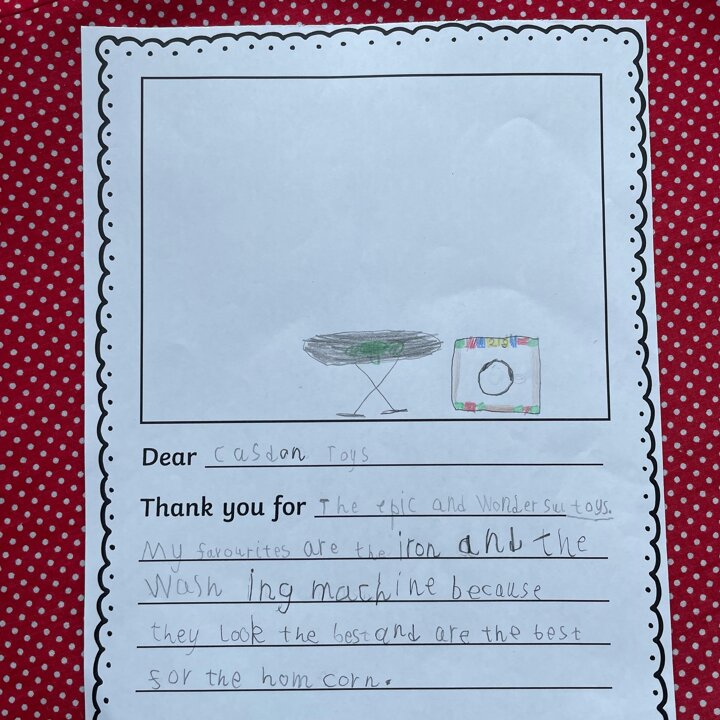 Dear casdon Toys
Thank you for The epic and Wonder sul toys.
My favourites are the iron and the
Wash ing machine because
they look the best and are the best
for the hom corn.